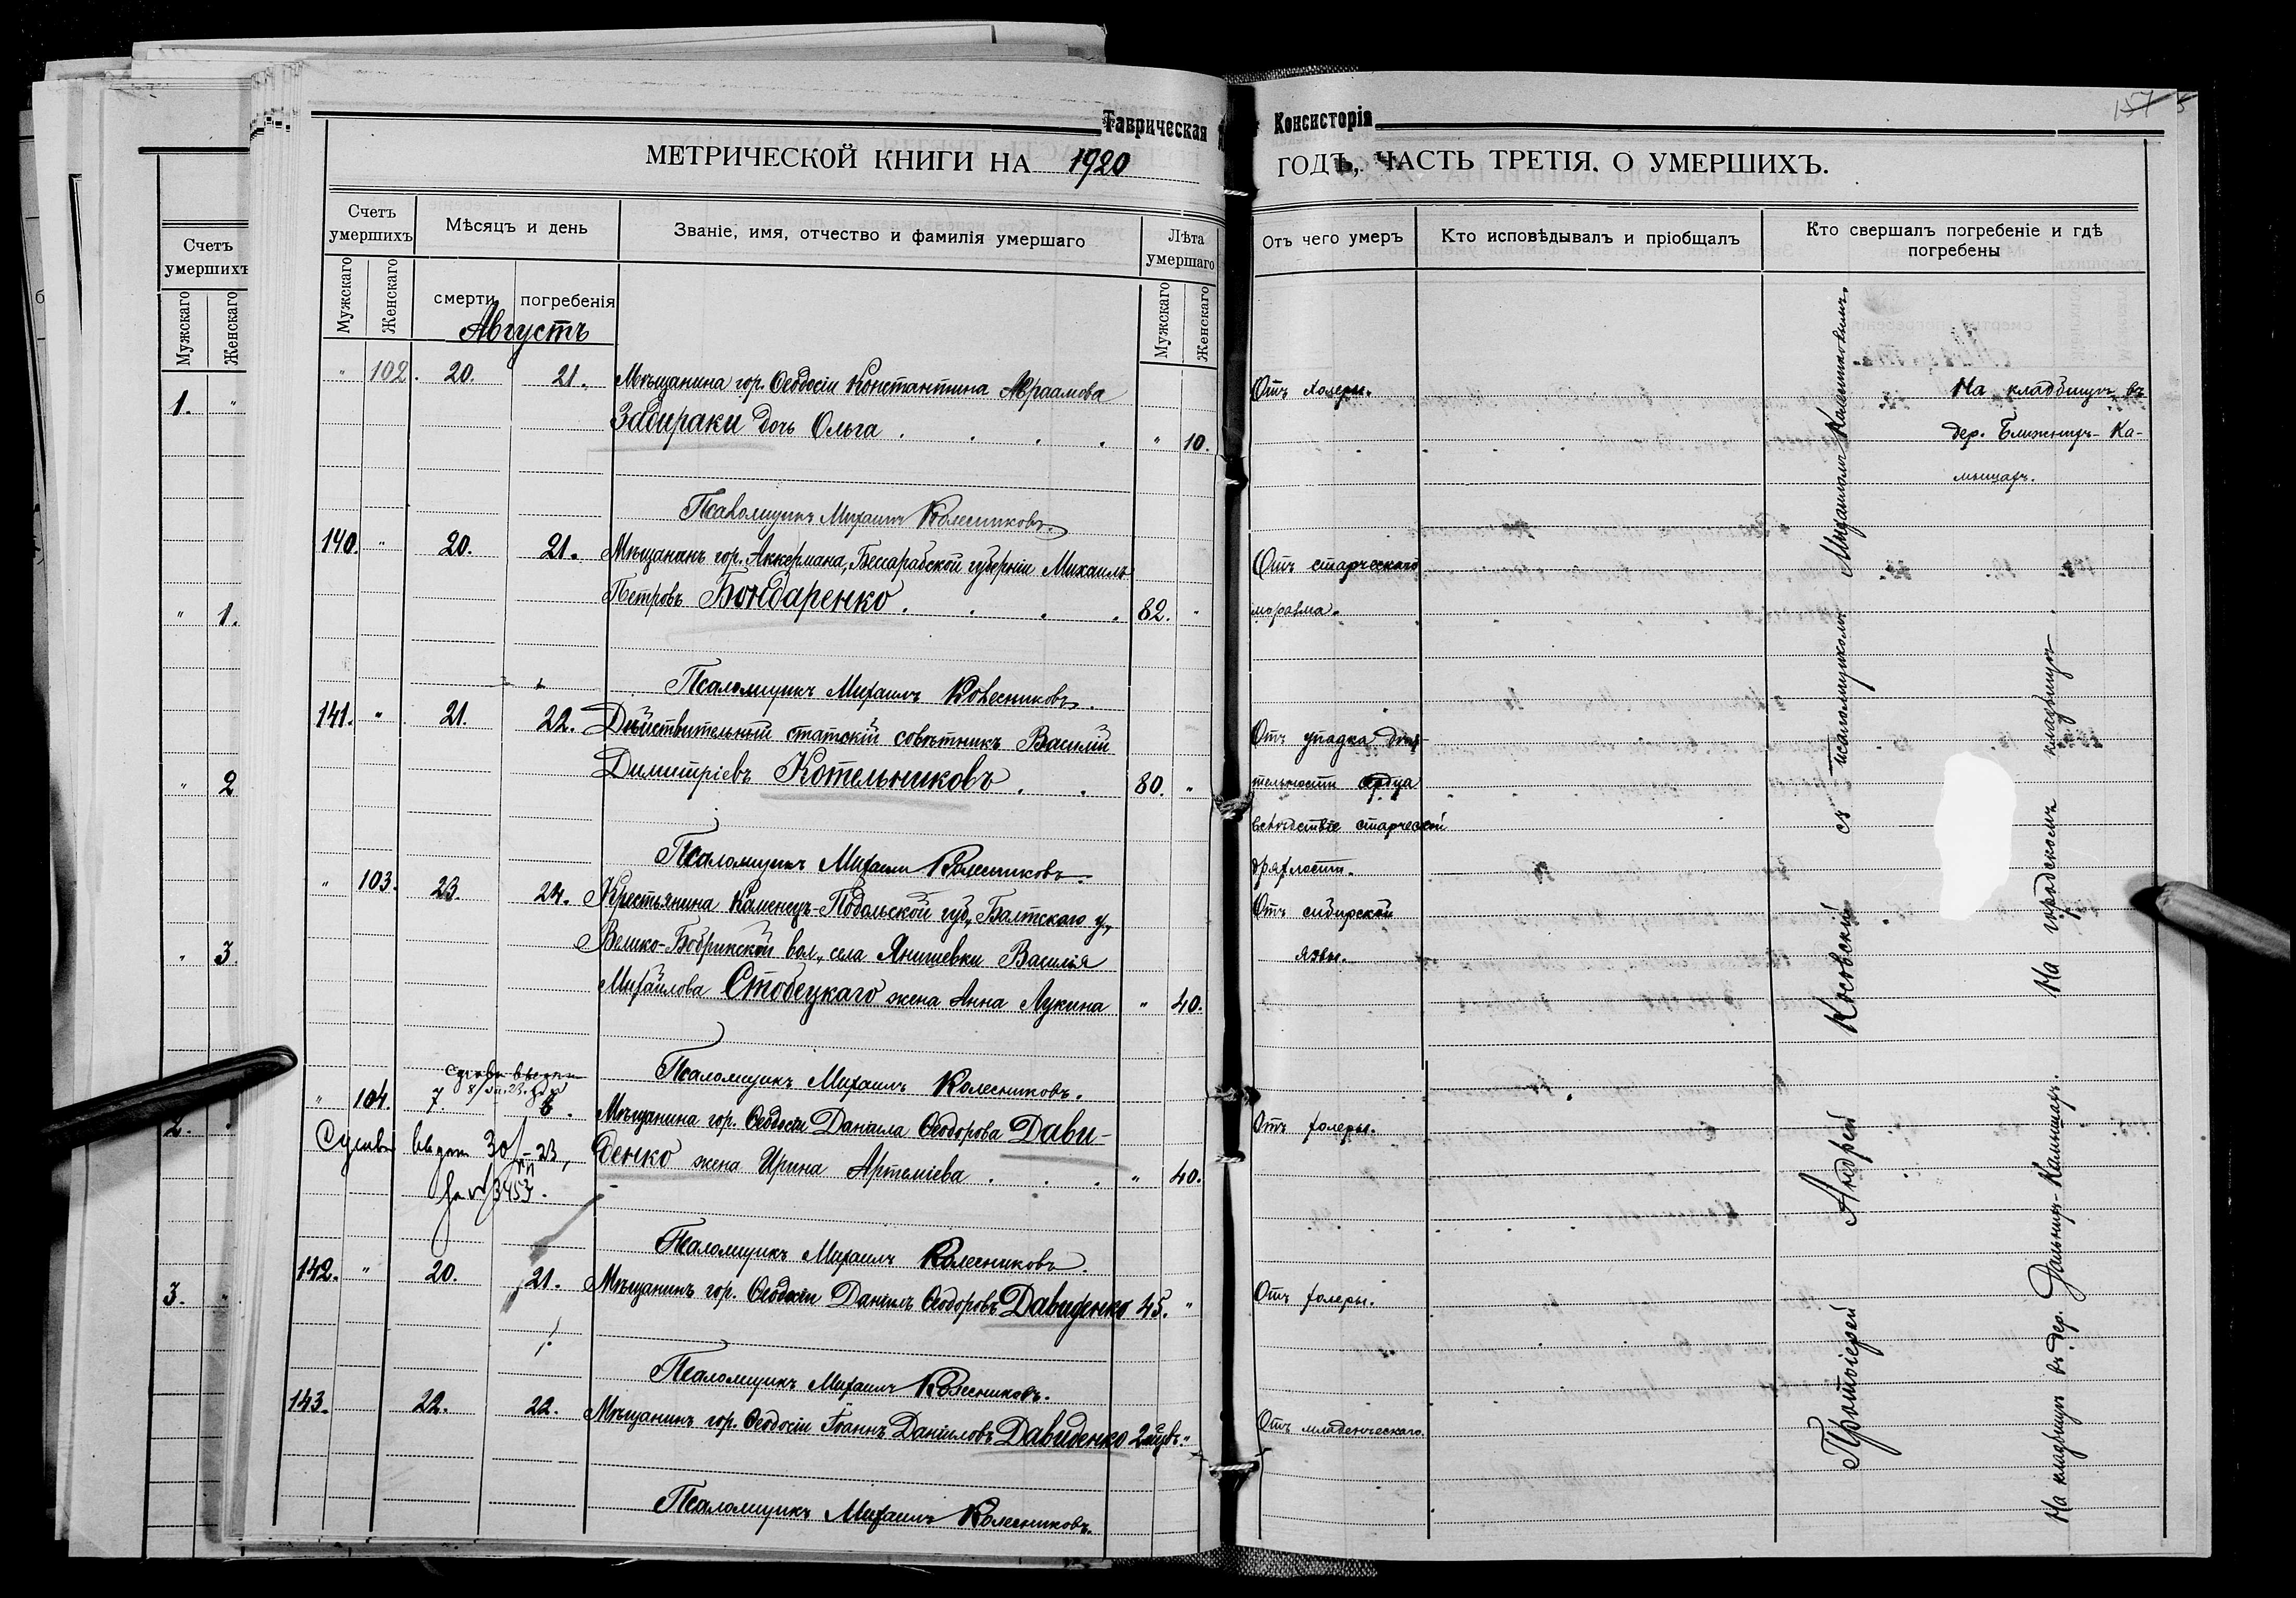 Таврическая Консисторія
157
МЕТРИЧЕСКОЙ КНИГИ НА 1920 ГОДЪ, ЧАСТЬ ТРЕТІЯ, О УМЕРШИХЪ.
Счетъ умершихъ
Мѣсяцъ и день
Званіе, имя, отчество и фамилія умершаго
Лѣта умершаго
Отъ чего умеръ
Кто исповѣдывалъ и пріобщалъ
Кто свершалъ погребеніе и гдѣ погребены
Мужскаго
Женскаго
смерти
погребенія
Мужскаго
Женскаго
Августъ
" 102. 20. 21. Мѣщанина гор. Ѳеодосіи Константина Авраамова
Забираки дочь Ольга . . . . " 10.
Отъ холеры.
На кладбищѣ въ
дер. Ближнихъ-Ка-
мышахъ.
Псаломщикъ Михаилъ Колесниковъ.
140. " 20. 21. Мѣщанинъ гор. Аккермана, Бессарабской губерніи Михаилъ
Петровъ Бондаренко . . . . 82. "
Отъ старческаго
моразма.
Псаломщикъ Михаилъ Колесниковъ.
141. " 21. 22. Дѣйствительный статскій совѣтникъ Василій
Димитріевъ Котельниковъ . . 80. "
Отъ упадка дѣя-
тельности сердца
вслѣдствіе старческой
дряхлости.
Псаломщикъ Михаилъ Колесниковъ.
" 103. 23. 24. Крестьянина Каменецъ-Подольской губ., Балтскаго у.,
Велико-Бобрикской вол., села Янишевки Василія
Михайлова Стобецкаго жена Анна Лукина " 40.
Отъ сибирской
язвы.
Псаломщикъ Михаилъ Колесниковъ.
" 104. 7. 8. Мѣщанина гор. Ѳеодосіи Даніила Ѳеодорова Дави-
денко жена Ирина Артеміева . . . " 40.
Отъ холеры.
за № 3453.
Псаломщикъ Михаилъ Колесниковъ.
142. " 20. 21. Мѣщанинъ гор. Ѳеодосіи Даніилъ Ѳеодоровъ Давиденко 45. "
Отъ холеры.
Псаломщикъ Михаилъ Колесниковъ.
143. 22. 22. Мѣщанинъ гор. Ѳеодосіи Іоаннъ Даніиловъ Давиденко 2 "
Отъ младенческаго.
Псаломщикъ Михаилъ Колесниковъ.
Протоіерей Андрей Косовскій съ псаломщикомъ Михаиломъ Колесниковымъ.
На кладбищѣ въ дер. Дальнихъ-Камышахъ.
На городскомъ кладбищѣ
Счетъ умершихъ
Мужскаго
Женскаго
1. "
" 1.
" 2
" 3.
2.
3. "